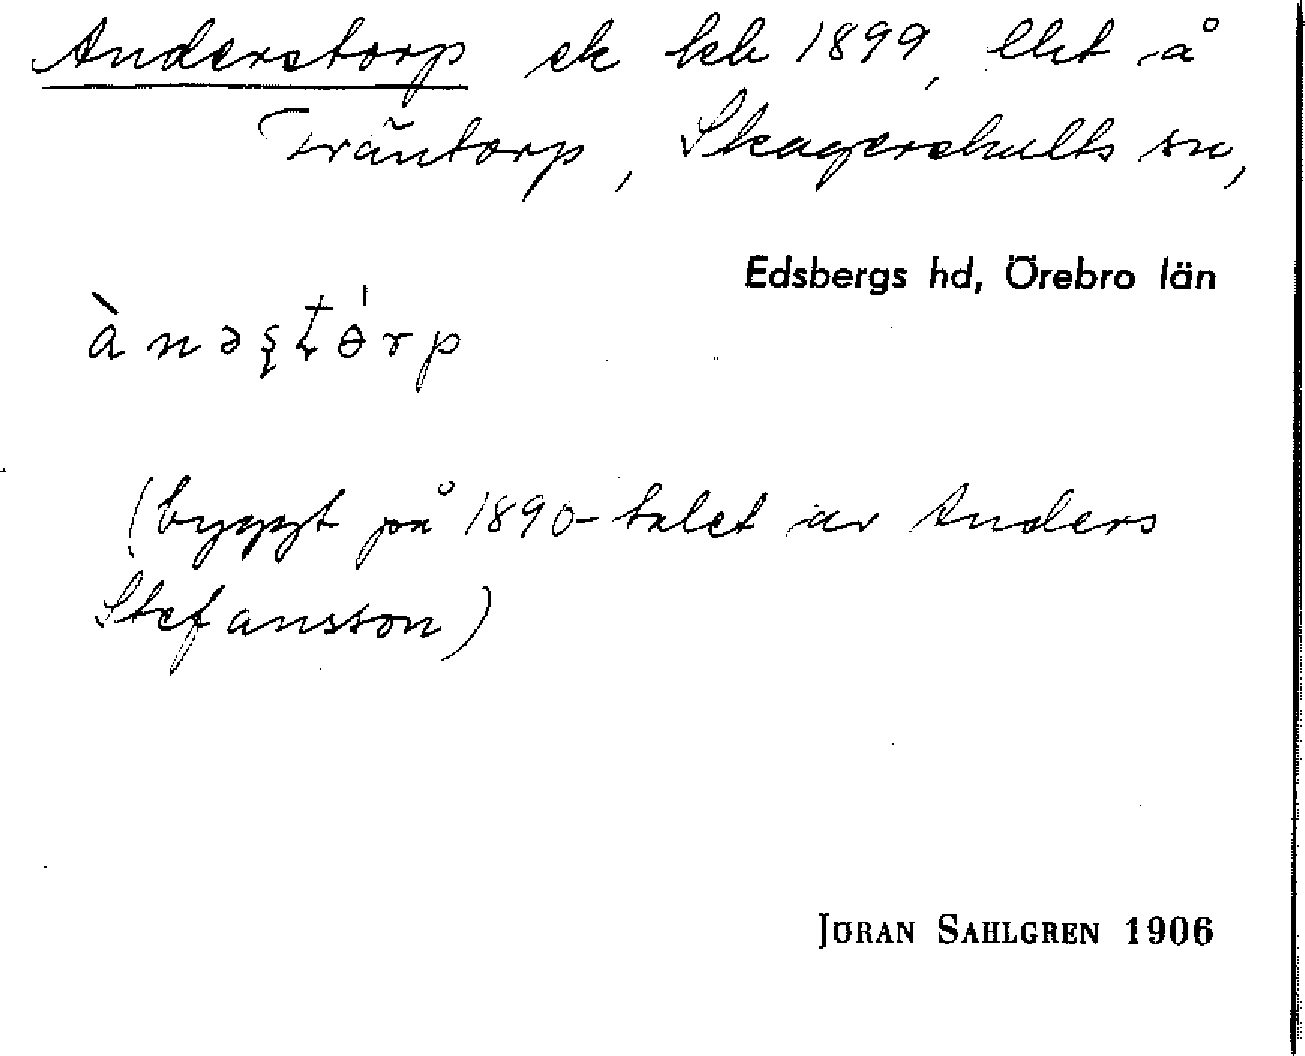 Anderstorp ek kb 1899, lht å
Träntorp, Skagershults sn,
Edsbergs hd, Örebro län
(byggt på 1890-talet av Anders
Stefansson)
JÖRAN SAHLGREN 1906